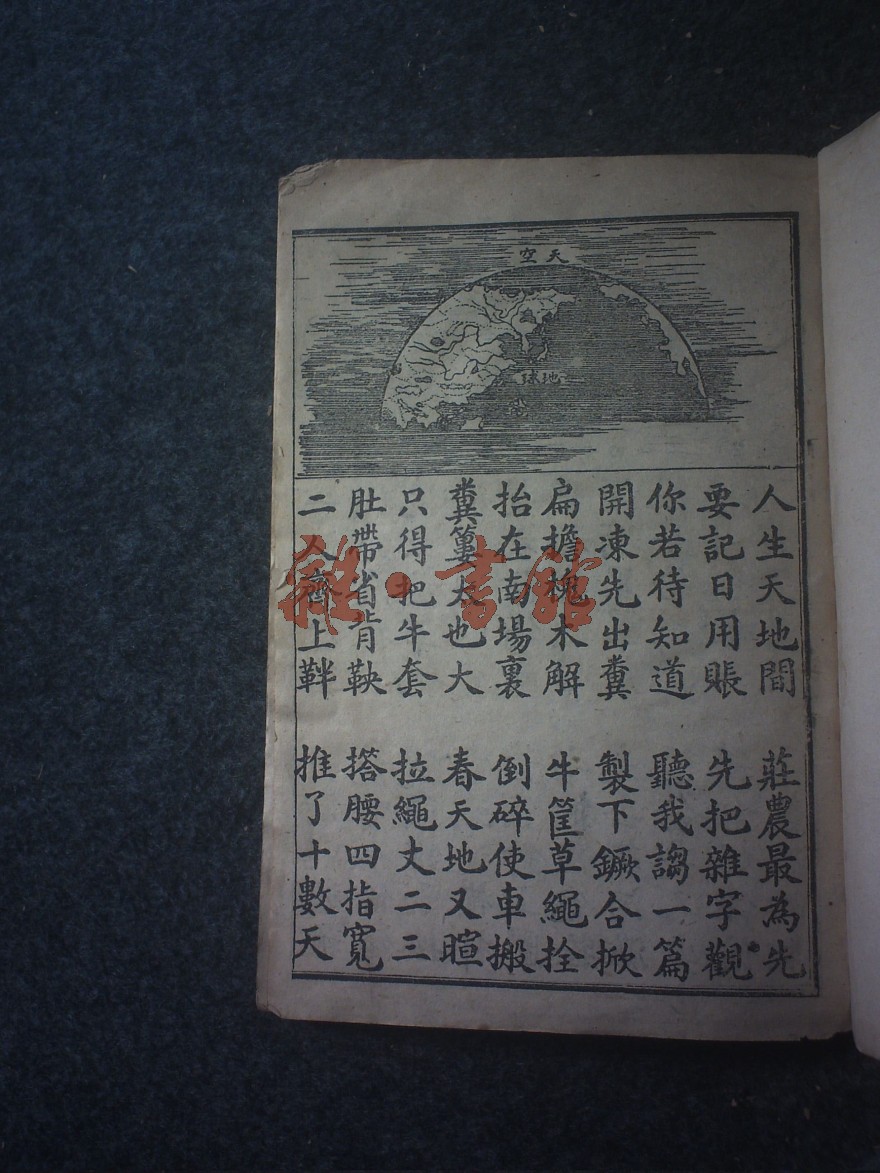 天空
地球
人生天地間 莊農最為先
要記日用賬 先把雜字觀
你若待知道 聽我謅一篇
開凍先出糞 製下鐝合掀
扁擔槐木解 牛筐草繩拴
抬在南場裏 倒碎使車搬
糞簍太也大 春天地又暄
只得把牛套 拉繩丈二三
肚帶省背鞅 搭腰四指寬
二人齊上靽 推了十數天
雜·書館